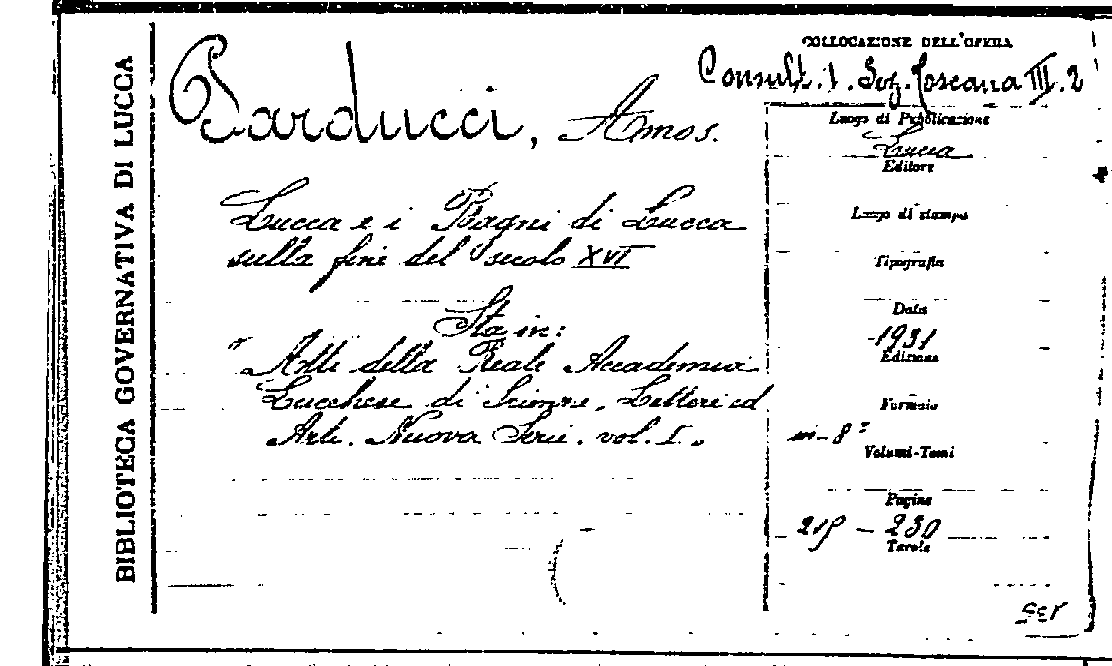 BIBLIOTECA GOVERNATIVA DI LUCCA
COLLOCAZIONE DELL'OPERA
Consult. 1. Sez. Toscana III. 2
Parducci, Amos.
Lucca e i Bagni di Lucca
sulla fine del secolo XVI
Sta in:
"Atti della Reale Accademia
Lucchese di Scienze, Lettere ed
Arti. Nuova Serie. vol. I.
Luogo di Pubblicazione
Lucca
Editore
Luogo di stampa
Tipografia
Data
1931
Edizione
Formato
in-8º
Volumi-Tomi
Pagine
219 - 230
Tavole